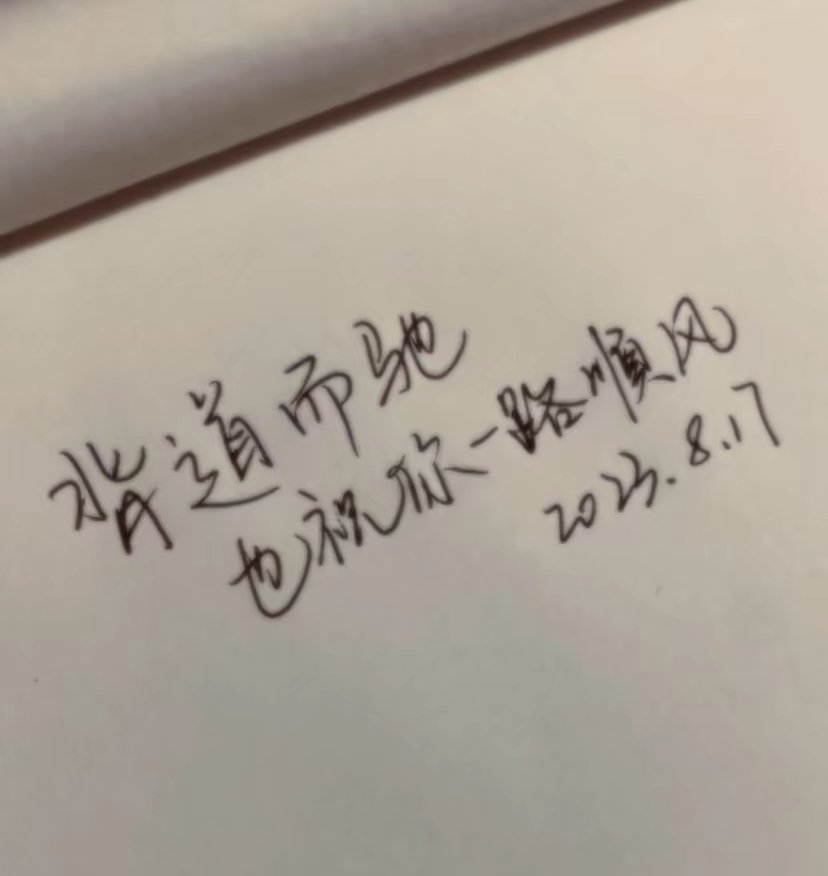 背道而驰
也祝你一路顺风
2023.8.17